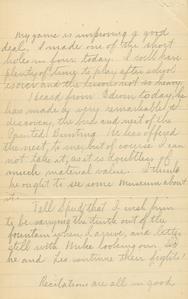 My game is improving a good
deal, I made one of the short
holes in four today. I will have
plenty of time to play after school
is over and the lessons not so heavy.
I heard from Edson today, he
has made a very remarkable
discovery, the bird and nest of the
Painted Bunting. He has offered
the nest, to me but of course I can
not take it, as it is doubtless of
much material value. I think
he ought to see some Museum about
it.
Tell Sped that I wish him
to be saying the tenth out of the
fountain when I arrive, and better
still with Mike looking on. So
he and Les continue their fights!
Recitations are all in good